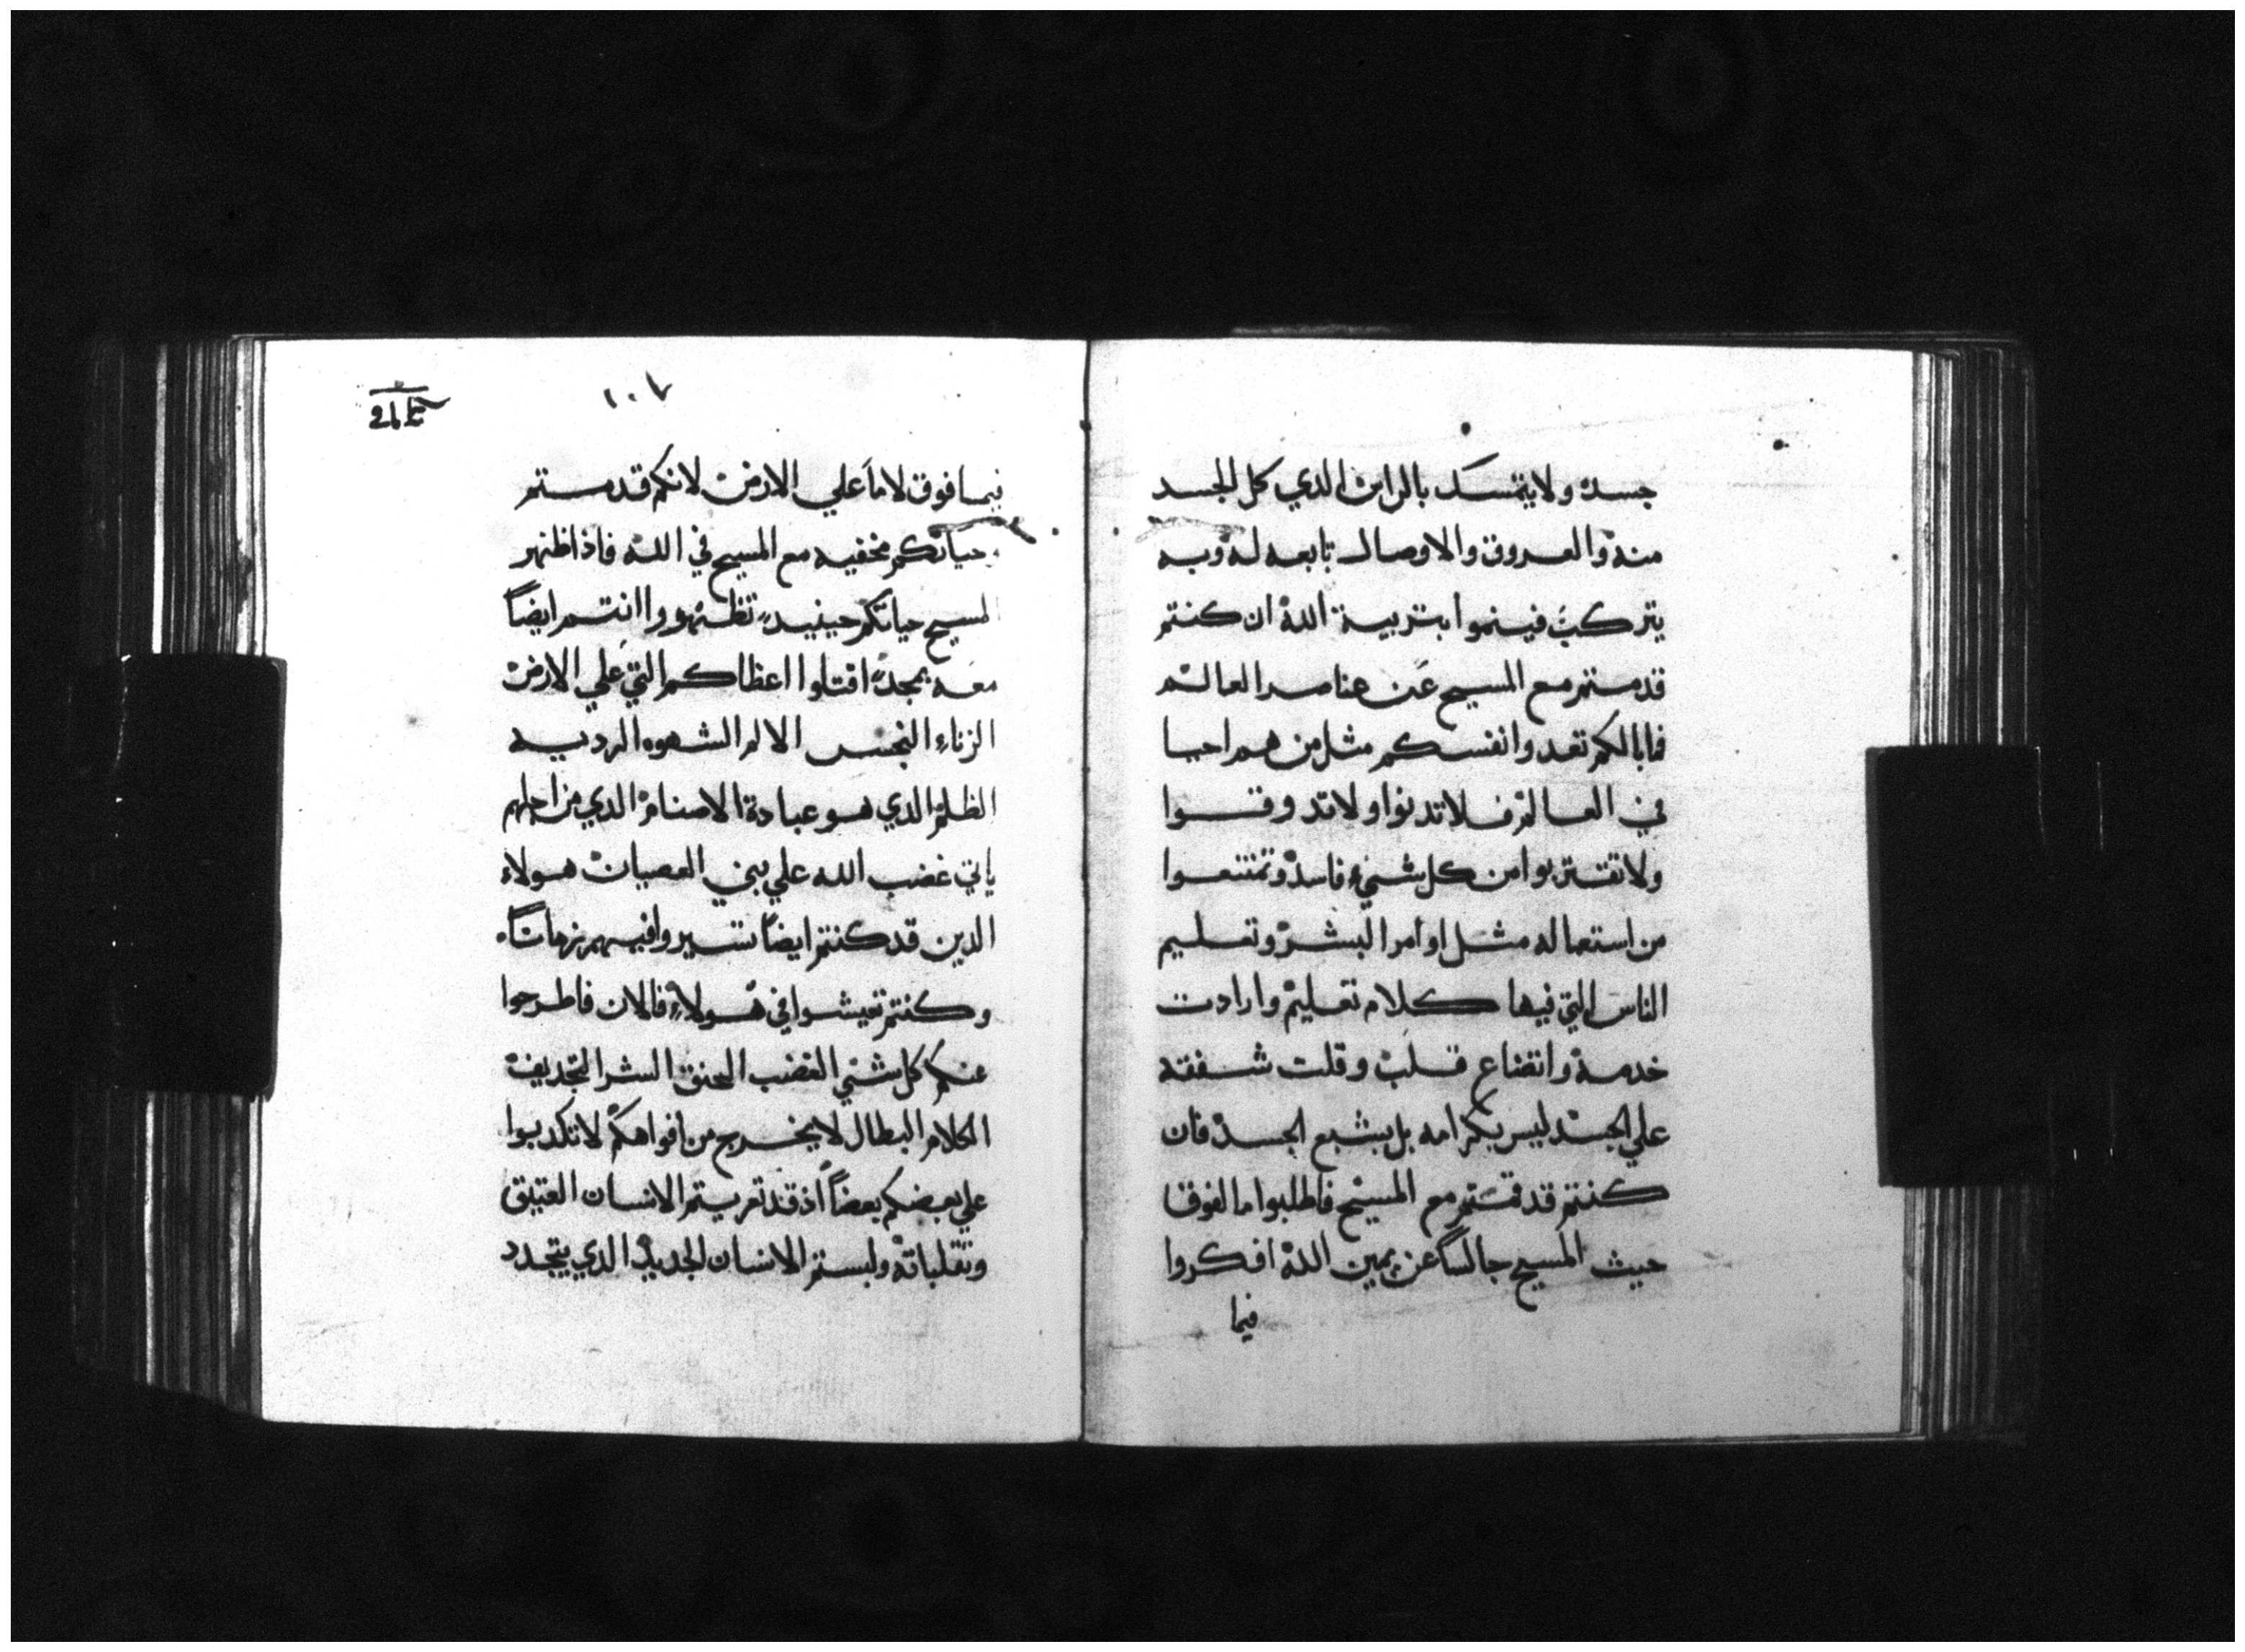 جسده ولا يتمسك بالراس الدي كل الجسد
منه والعروق والاوصال تابعه له وبه
يتركب فينموا بتربية الله ان كنتم
قد متم مع المسيح عن عناصر العالم
فما بالكم تعدوا نفسكم مثل من هم احيا
في العالم فلا تدنوا ولا تدوقوا
ولا تقتربوا من كل شيء فاسد وتمتنعوا
من استعماله مثل اوامر البشر وتعليم
الناس التي فيها كلام تعليم وارادت
خدمة واتضاع قلب وقلت شفقه
علي الجسد ليس بكرامه بل بشبع الجسد فان
كنتم قد قمتم مع المسيح فاطلبوا ما الفوق
حيث المسيح جالساً عن يمين الله افكروا
فيما
١٠٧
فيما فوق لا ما علي الارض لانكم قد متم
حياتكم مخفيه مع المسيح في الله فاذا ظهر
المسيح حياتكم حينيد تظهروا انتم ايضاً
معه بمجد اقتلوا اعظاكم التي علي الارض
الزناء النجس الالم الشهوه الرديه
الظلم الدي هو عبادة الاصنام الدي من اجلهم
ياتي غضب الله علي بني العصيان هولاء
الدين قد كنتم ايضاً تسيروا فيهم زماناً
وكنتم تعيشوا في هولاء فالان فاطرحوا
عنكم كل شي الغضب الحنق الشر التجديف
الكلام البطال لا يخرج من افواهكم لا تكدبوا
علي بعضكم بعضاً اذ قد تعريتم الانسان العتيق
وتقلباته ولبستم الانسان الجديد الدي يتجدد